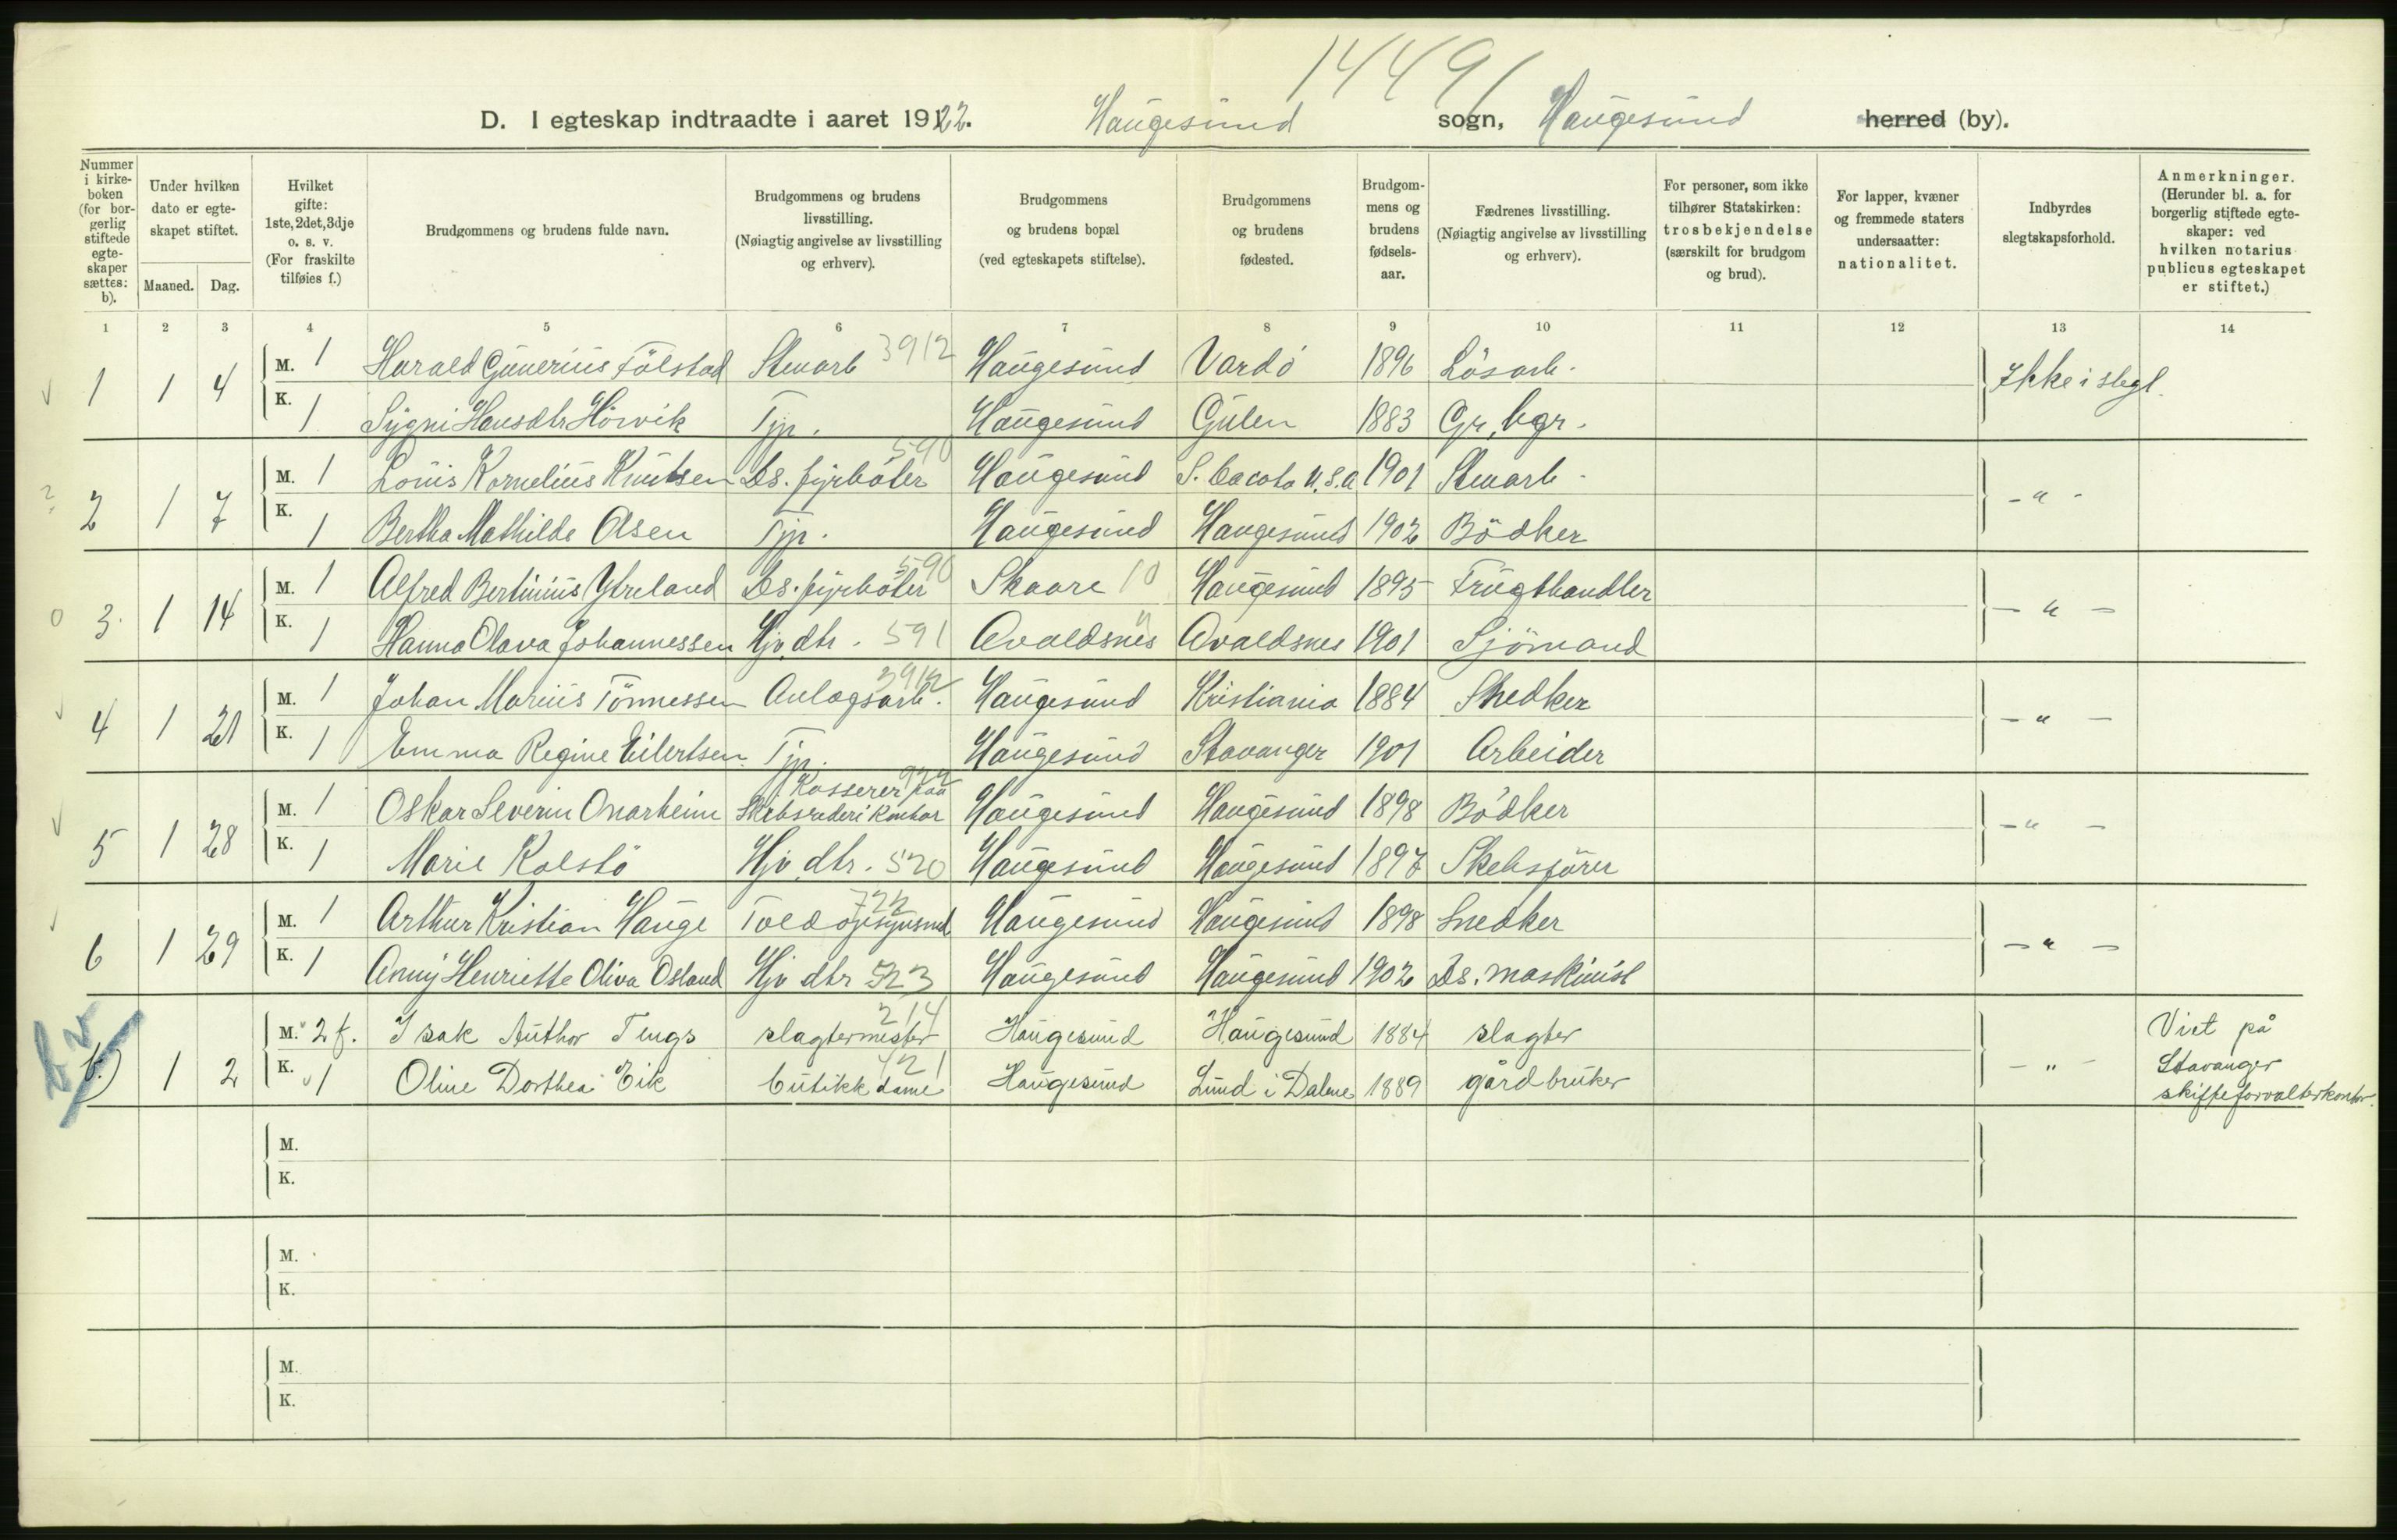 1449/
D. I egteskap indtraadte i aaret 1922. Haugesund sogn, Haugesund herred (by).
Nummer i kirke-boken (for bor-gerlig stiftede egte-skaper sættes: b).
Under hvilken dato er egte-skapet stiftet.
Maaned. Dag.
Hvilket gifte: 1ste, 2det, 3dje o. s. v. (For fraskilte tilføies f.)
Brudgommens og brudens fulde navn.
Brudgommens og brudens livsstilling. (Nøiagtig angivelse av livsstilling og erhverv).
Brudgommens og brudens bopæl (ved egteskapets stiftelse).
Brudgommens og brudens fødested.
Brudgom-mens og brudens fødsels-aar.
Fædrenes livsstilling. (Nøiagtig angivelse av livsstilling og erhverv).
For personer, som ikke tilhører Statskirken: trosbekjendelse (særskilt for brudgom og brud).
For lapper, kvæner og fremmede staters undersaatter: nationalitet.
Indbyrdes slegtskapsforhold.
Anmerkninger. (Herunder bl. a. for borgerlig stiftede egte-skaper: ved hvilken notarius publicus egteskapet er stiftet.)
1 2 3 4 5 6 7 8 9 10 11 12 13 14
1 1 4 M. 1 Harald Gunerius Tölstad Stuarb 3912 Haugesund Vardö 1896 Lösarb. Ikke i slegt.
K. 1 Sygni Hansdtr Hörvik Tjp. Haugesund Gulen 1883 Gr. bgr.
2 1 7 M. 1 Louis Kornelius Knutsen Ds. fyrböter 590 Haugesund S. Dacota U.S.A 1901 Stuarb - " -
K. 1 Bertha Mathilde Olsen Tjp. Haugesund Haugesund 1902 Bödker
3 1 14 M. 1 Alfred Bertinius Ytreland Ds. fyrböter 590 Skaare 10 Haugesund 1895 Frugthandler - " -
K. 1 Hanna Olava Johannessen Hjv. dtr. 591 Avaldsnes " Avaldsnes 1901 Sjömand
4 1 21 M. 1 Johan Marius Tönnessen Anlagsarb. 3912 Haugesund Kristiania 1884 Snedker - " -
K. 1 Emma Regine Eilertsen Tjp. Haugesund Stavanger 1901 Arbeider
5 1 28 M. 1 Oskar Severin Onarheim Kasserer paa Skibsrederikontor 922 Haugesund Haugesund 1898 Bödker - " -
K. 1 Marie Kolstö Hjv. dtr. 520 Haugesund Haugesund 1897 Skibsförer
6 1 29 M. 1 Arthur Kristian Hauge Toldopsynsmd 722 Haugesund Haugesund 1898 Snedker - " -
K. 1 Anny Henriette Oliva Osland Hjv dtr 523 Haugesund Haugesund 1902 Ds. maskinist
b.) 1 2 M. 2 f. Isak Author Tengs slagtermester 214 Haugesund Haugesund 1884 slagter - " - Viet på
K. 1 Oline Dorthea Eik butikkdame 421 Haugesund Lund i Dalene 1889 gårdbruker Stavanger
skifteforvalterkontor.
M.
K.
M.
K.
M.
K.